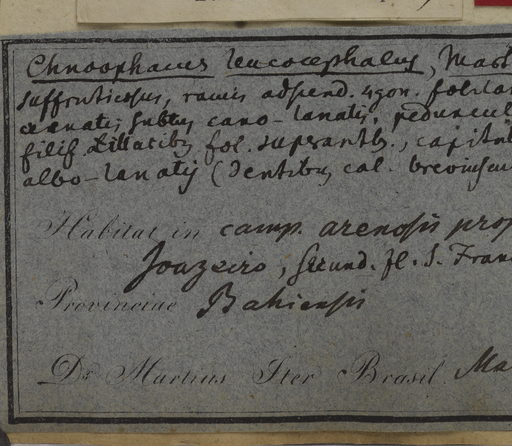 Chnoophacus leucocephalus, Mart
suffruticosus, ramis adscend. 4gon. foliis
crenatis, subtus cano-lanatis, peduncul
filif. axillarib. fol. superantib., capitul
albo-lanatis (dentibus cal. brevius
Habitat in camp. arenosis prop
Joazeiro, secund. fl. S. Fran
Provinciae Bahiensis
Dr. Martius Iter Brasil. Ma